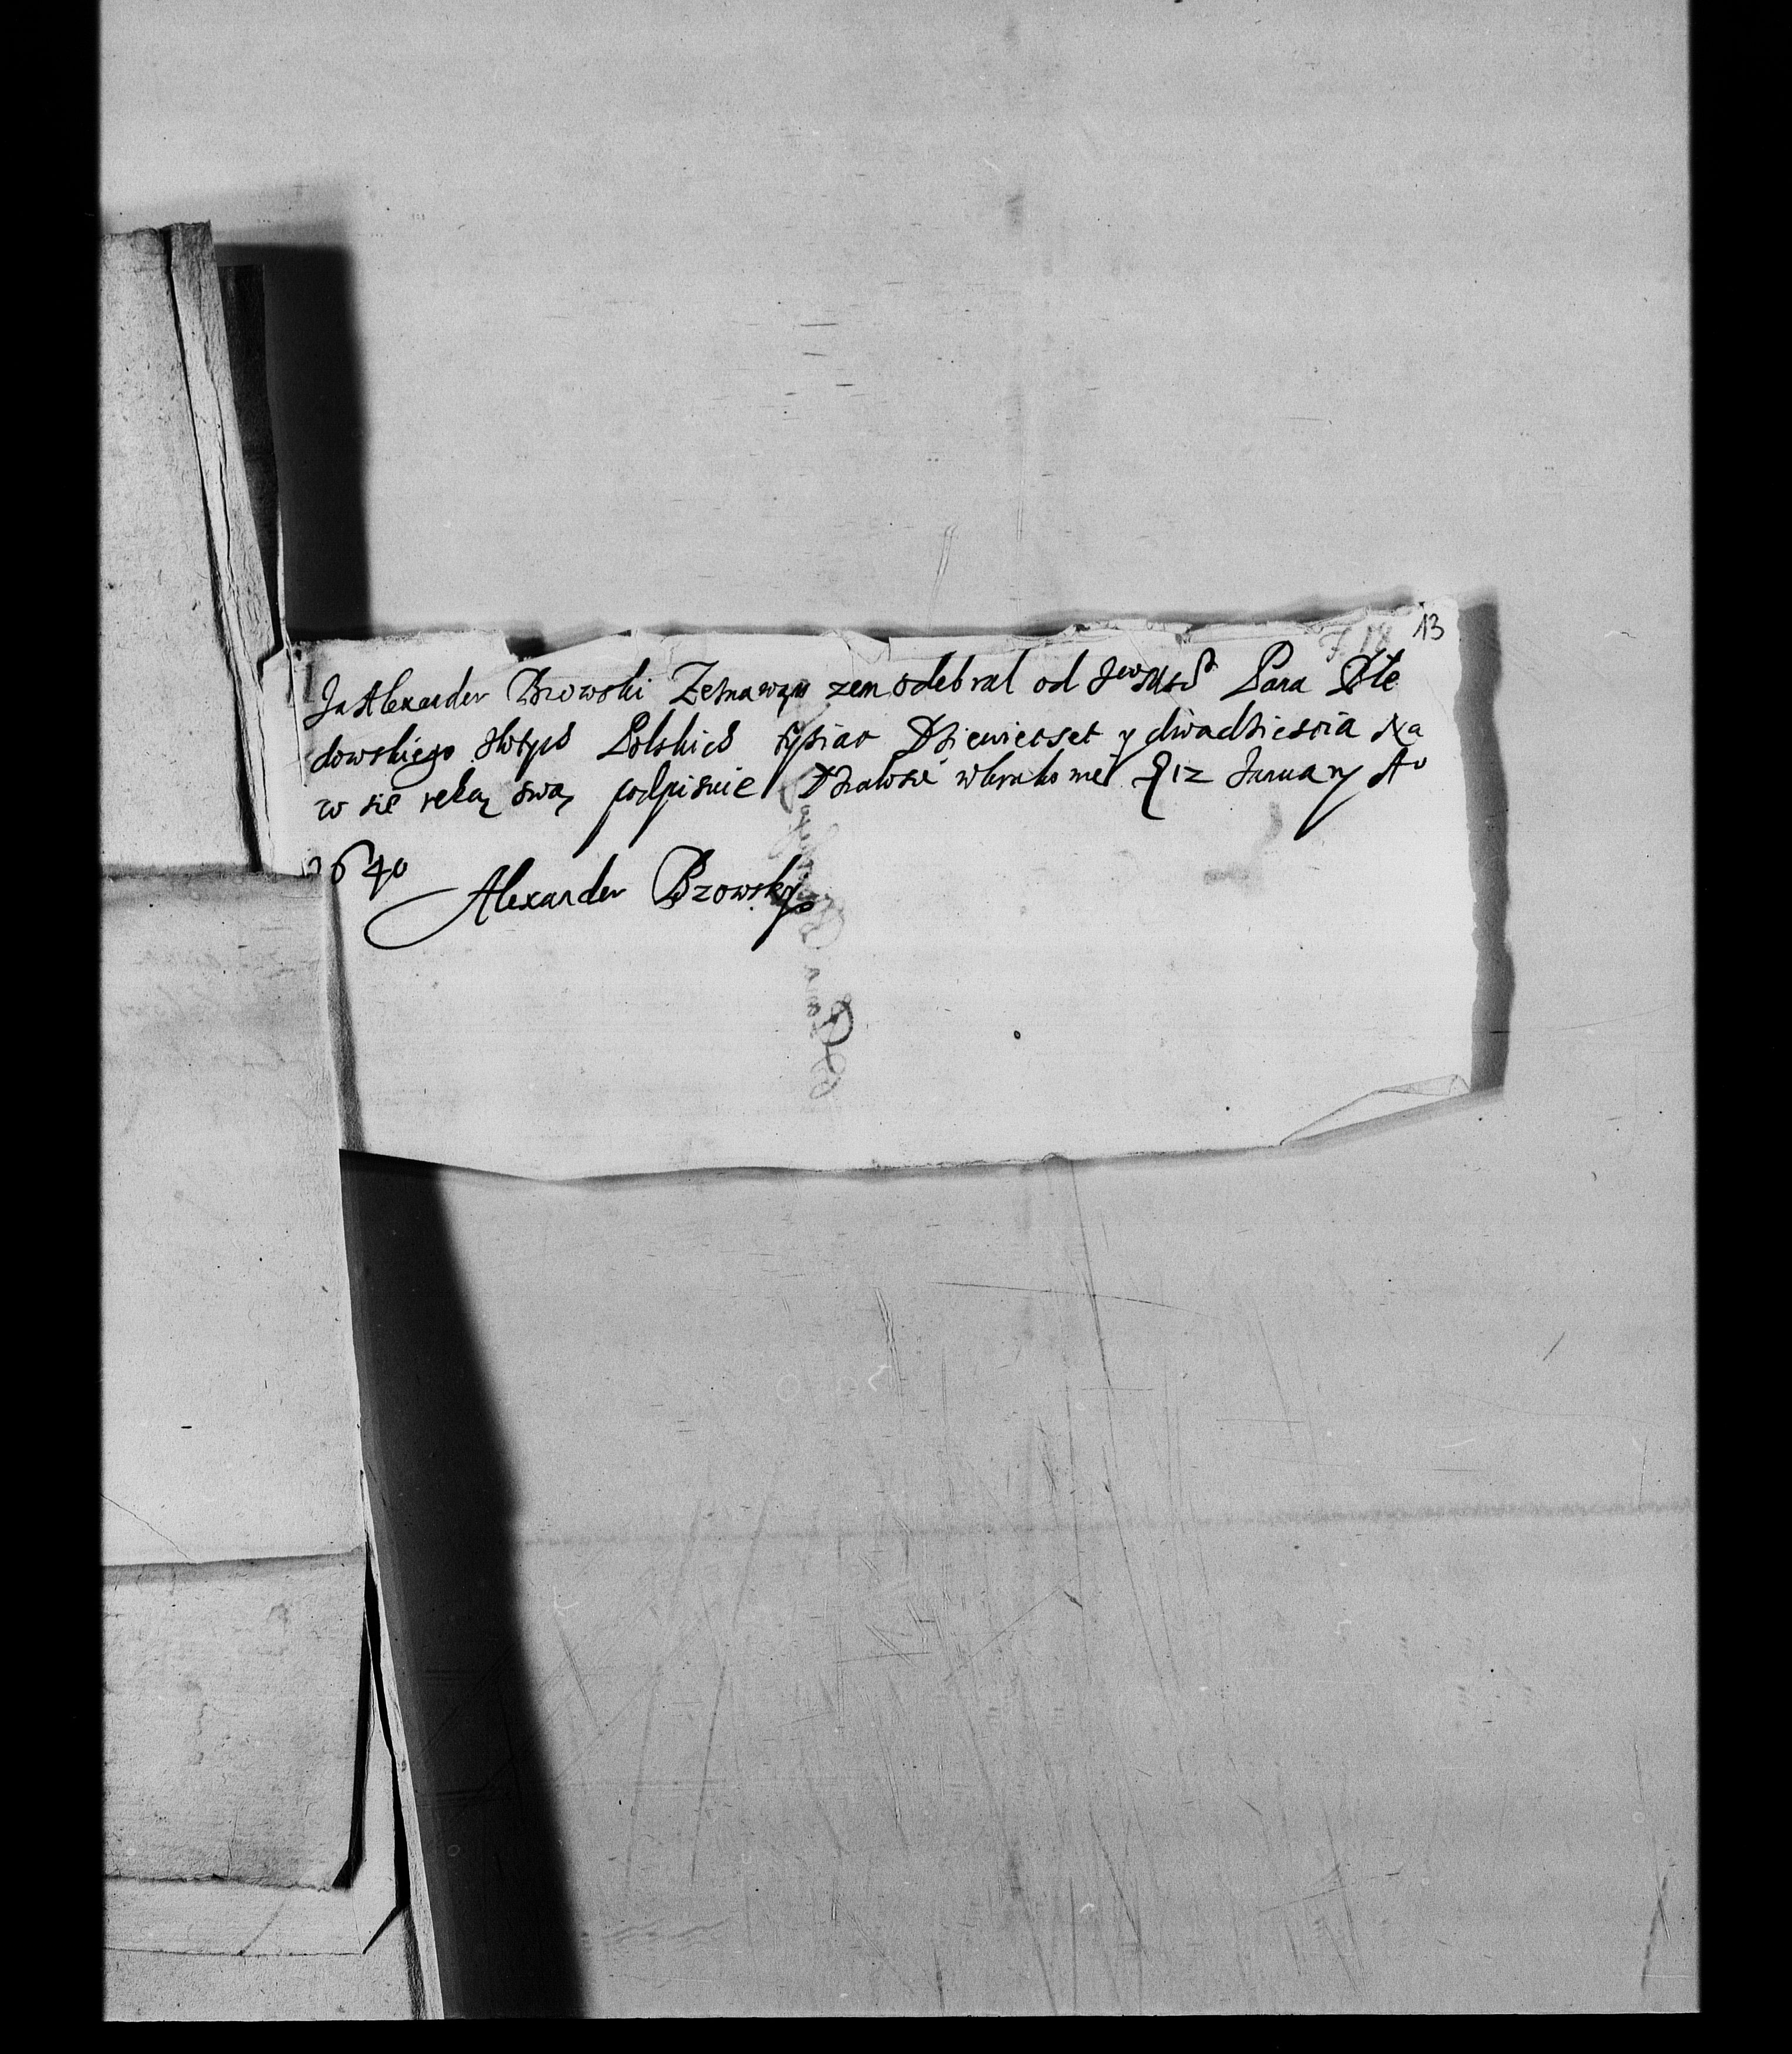 13
Ja Alexander Bzowski Zeznawam zem odebral od Jego Msci Pana Ble
dowskiego złotych Polskich tysiac Dziewiecset y dwadziescia Na
co sie reką swą podpisuie Działosie wkrakowie 12 January Ao
1640
Alexander Bzowsky